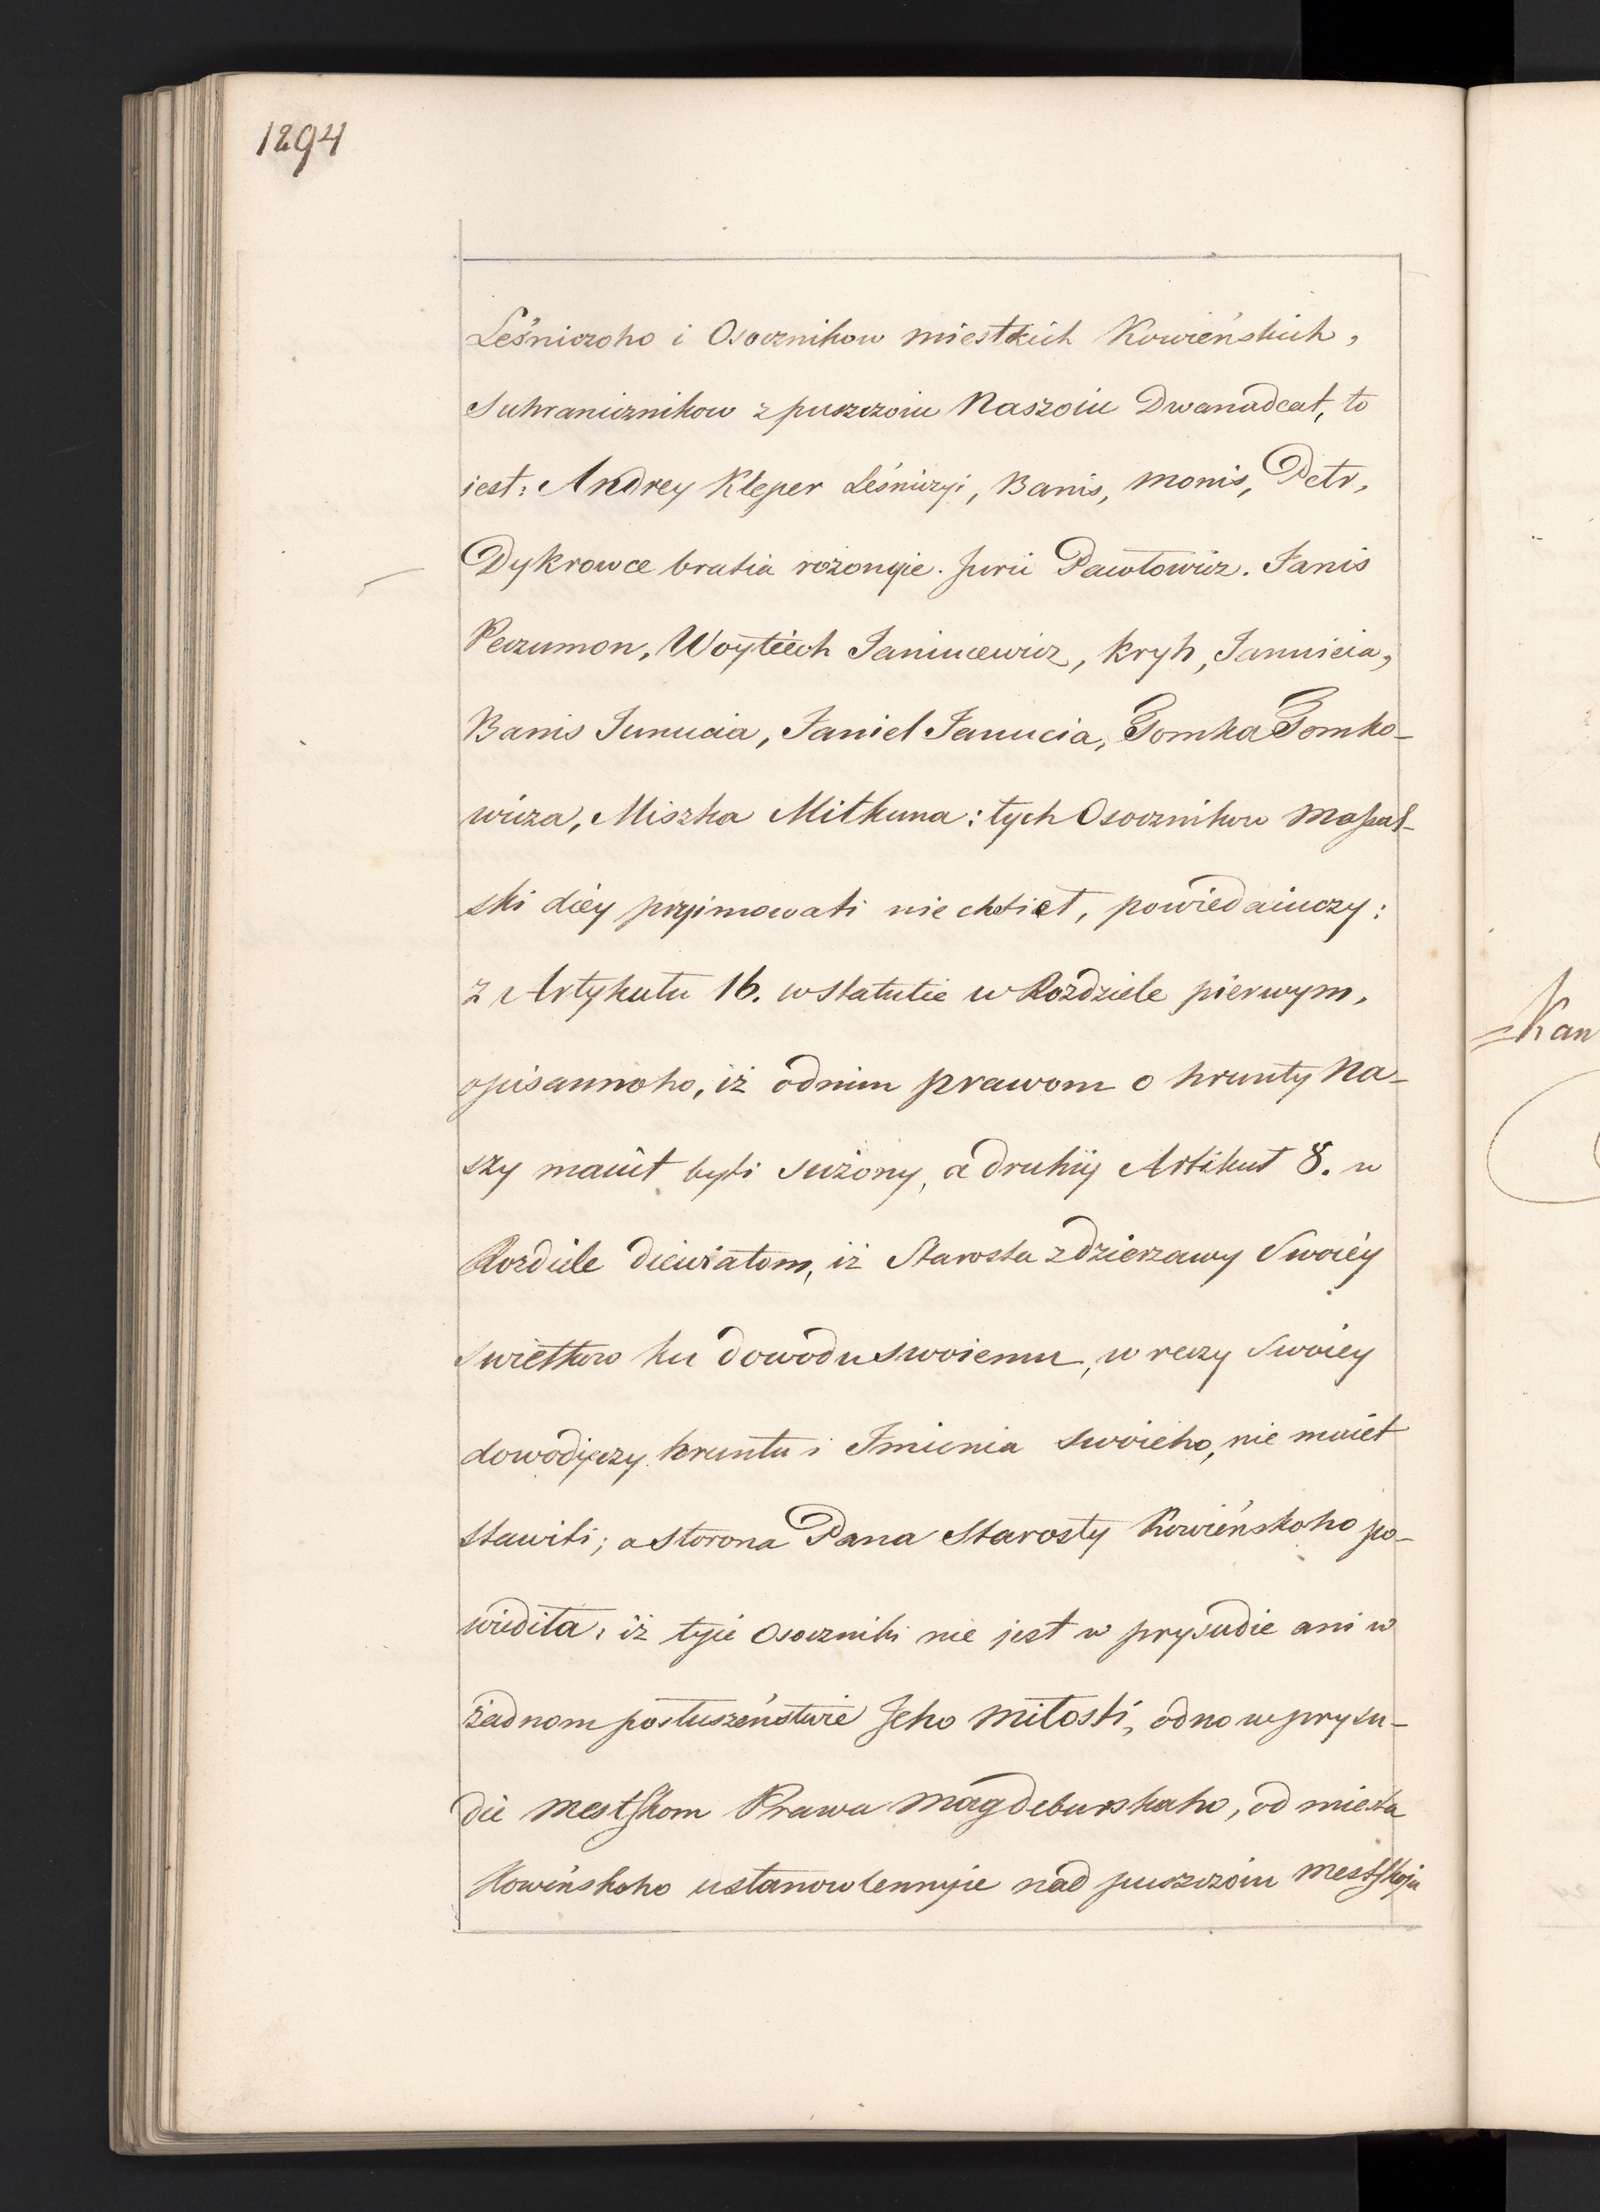 1294
Leśniczoho i Osocznikow miestkich Kowieńskich,
suhranicznikow z puszczoiu Naszoiu Dwanadcat, to
iest: Andrey Kleper Leśniczyi, Banis, Monis, Petr,
Dykrowce bratia rożonyie. Jurii Pawłowicz. Janis
Peczumon, Woytiech Janiucewicz, Kryh, Januicia,
Banis Junucia, Janiel Janucia, Tomka Tomko-
wicza, Miszka Mitkuna: tych Osocznikow Masal-
ski diey pryimowati nie chotieł, powiedaiuczy:
z Artykułu 16. w statutie w Rozdziele pierwym,
opisannoho, iż odnim prawom o hrunty Na-
szy maiut byti sużony, a druhiy Artikuł 8. w
Rozdiele diewiatom, iż Starosta z dzierzawy Swoiey
swietkow ku dowodu swoiemu, w reczy Swoiey
dowodiączy hruntu i Imienia swoieho, nie maiet
stawiti; a storona Pana Starosty Kowieńskoho po-
wiediła, iż tyie Osoczniki nie jest w prysudie ani w
żadnom posłuszeństwie Jeho Miłosti, odno w prysu-
die mestskom Prawa Magdeburskaho, od miesta
Kowieńskoho ustanowlennyie nad puszczoiu mestskoju
Kan